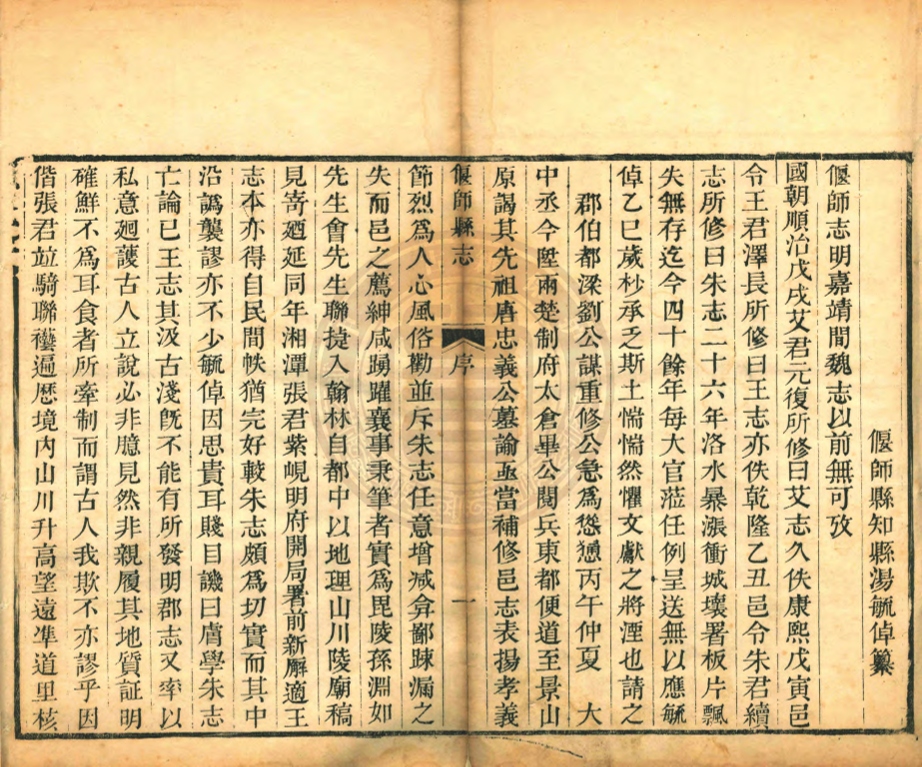 偃師縣知縣湯毓倬纂
偃師志明嘉靖間魏志以前無可攷
國朝順治戊戌艾君元復所修曰艾志久佚康熙戊寅邑
令王君澤長所修曰王志亦佚乾隆乙丑邑令朱君續
志所修曰朱志二十六年洛水暴漲衝城壞署板片飄
失無存迄今四十餘年每大官蒞任例呈送無以應毓
倬乙巳歲杪承乏斯土惴惴然懼文獻之將湮也請之
郡伯都梁劉公謀重修公急為慫慂丙午仲夏　大
中丞今陞兩楚制府太倉畢公閱兵東都便道至景山
原謁其先祖唐忠義公墓諭亟當補修邑志表揚孝義
偃師縣志　序　一
節烈為人心風俗勸並斥朱志任意增減弇鄙踈漏之
失而邑之薦紳咸踴躍襄事秉筆者實為毘陵孫淵如
先生會先生聯㨗入翰林自都中以地理山川陵廟稿
見寄廼延同年湘潭張君紫峴明府開局署前新廨適王
志本亦得自民間帙猶完好較朱志頗為切實而其中
沿譌襲謬亦不少毓倬因思貴耳賤目譏曰膚學朱志
亡論已王志其汲古淺旣不能有所發明郡志又率以
私意廻護古人立說必非臆見然非親履其地質証明
確鮮不為耳食者所牽制而謂古人我欺不亦謬乎因
偕張君竝騎聯襼遍歷境內山川升高望遠凖道里核